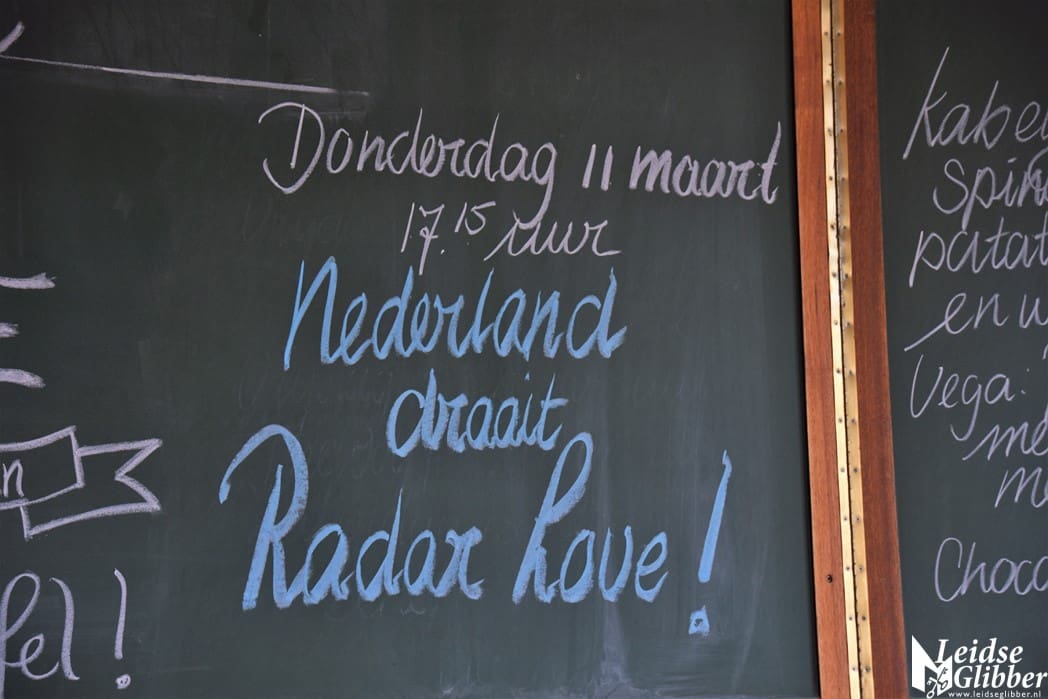 Donderdag 11 maart
17.15 uur
Nederland
draait
Radar Love!
patat
en
Vega:
Leidse
Glibber
www.leidseglibber.nl